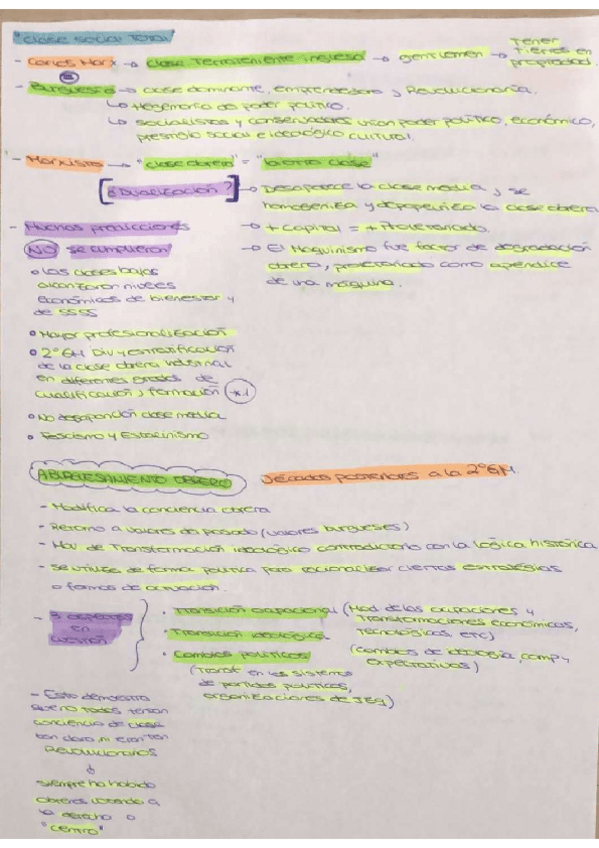 "Clase social TOTAL"
- Carlos Marx → Clase Terrateniente inglesa → gentlemen → Tener tierras en propiedad.
- Burguesía → clase dominante, emprendedora y Revolucionaria.
↳ Hegemonía de poder político.
↳ socialistas y conservadores unían poder político, económico,
prestigio social e ideológico cultural.
- Marxistas → "clase obrera" = "la otra clase"
[¿Dualización?] → Desaparece la clase media, se
homogeniza y depaupera la clase obrera
→ + Capital = + Proletariado.
→ El Maquinismo fue factor de degradación
obrera, proletariado como apéndice
de una máquina.
- Muchas predicciones
NO se cumplieron
• Las clases bajas
alcanzaron niveles
económicos de bienestar y
de SSSS
• Mayor profesionalización
• 2º GM Div y estratificación
de la clase obrera industrial
en diferentes grados de
cualificación y formación *1
• No desaparición clase media
• Fascismo y Estalinismo
ABURGUESAMIENTO OBRERO Décadas posteriores a la 2º GM.
- Modifica la conciencia obrera
- Retorno a valores del pasado (valores burgueses)
- de Transformación ideológica contradictorio con la lógica histórica
- Se utiliza de forma política para racionalizar ciertas estrategias
o formas de actuación.
- 3 aspectos
en
cuestión
• Transición ocupacional (Mod. de las ocupaciones y
Transformaciones económicas,
tecnológicas, etc)
• Transición ideológica (cambios de ideología, comp y
expectativas)
• Cambios políticos
(Transf. en los sistemas
de partidos políticos,
organizaciones de)
- Esto demuestra
que no todos tenían
conciencia de clase
tan clara, ni eran tan
Revolucionarios
↓
siempre ha habido
obreros votando a
la derecha o
"centro"